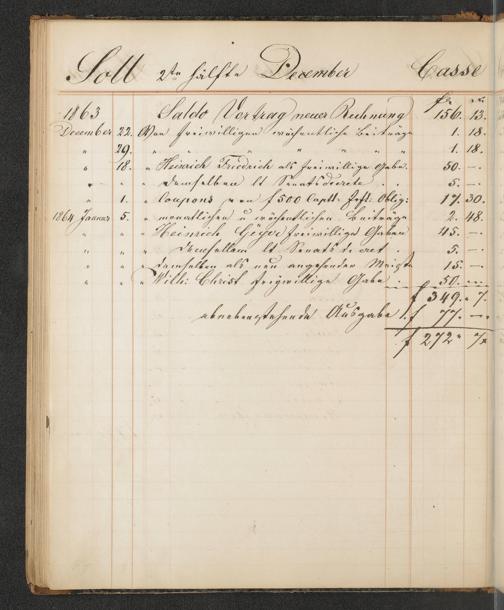 Soll 2te hälfte December Casse
1863 Saldo Vortrag neuer Rechnung f 156. 13.
December 22. An freiwilligen wöchentliche Beiträge 1. 18.
" 29. " " " " " 1. 18.
" 18. " Heinrich Friedrich als freiwillige Gabe. 50. —
" " " demselben lt Senatsdecrete . 5. —
" 1. " Coupons von f 500 Oblig: 17. 30.
1864 Januar 5. " monatlichen u wöchentlichen Beiträge 2. 48.
" " " Heinrich Geyer freiwillige Gaben 45. —
" " " demselben lt Senatsdecret . 5. —
" " " demselben als neu angehenden Meister 15. —
" " " Wilh: Christ freiwillige Gabe . 50. —
f 349. 7.
obenbenstehende Ausgabe f 77. —
f 272. 7.